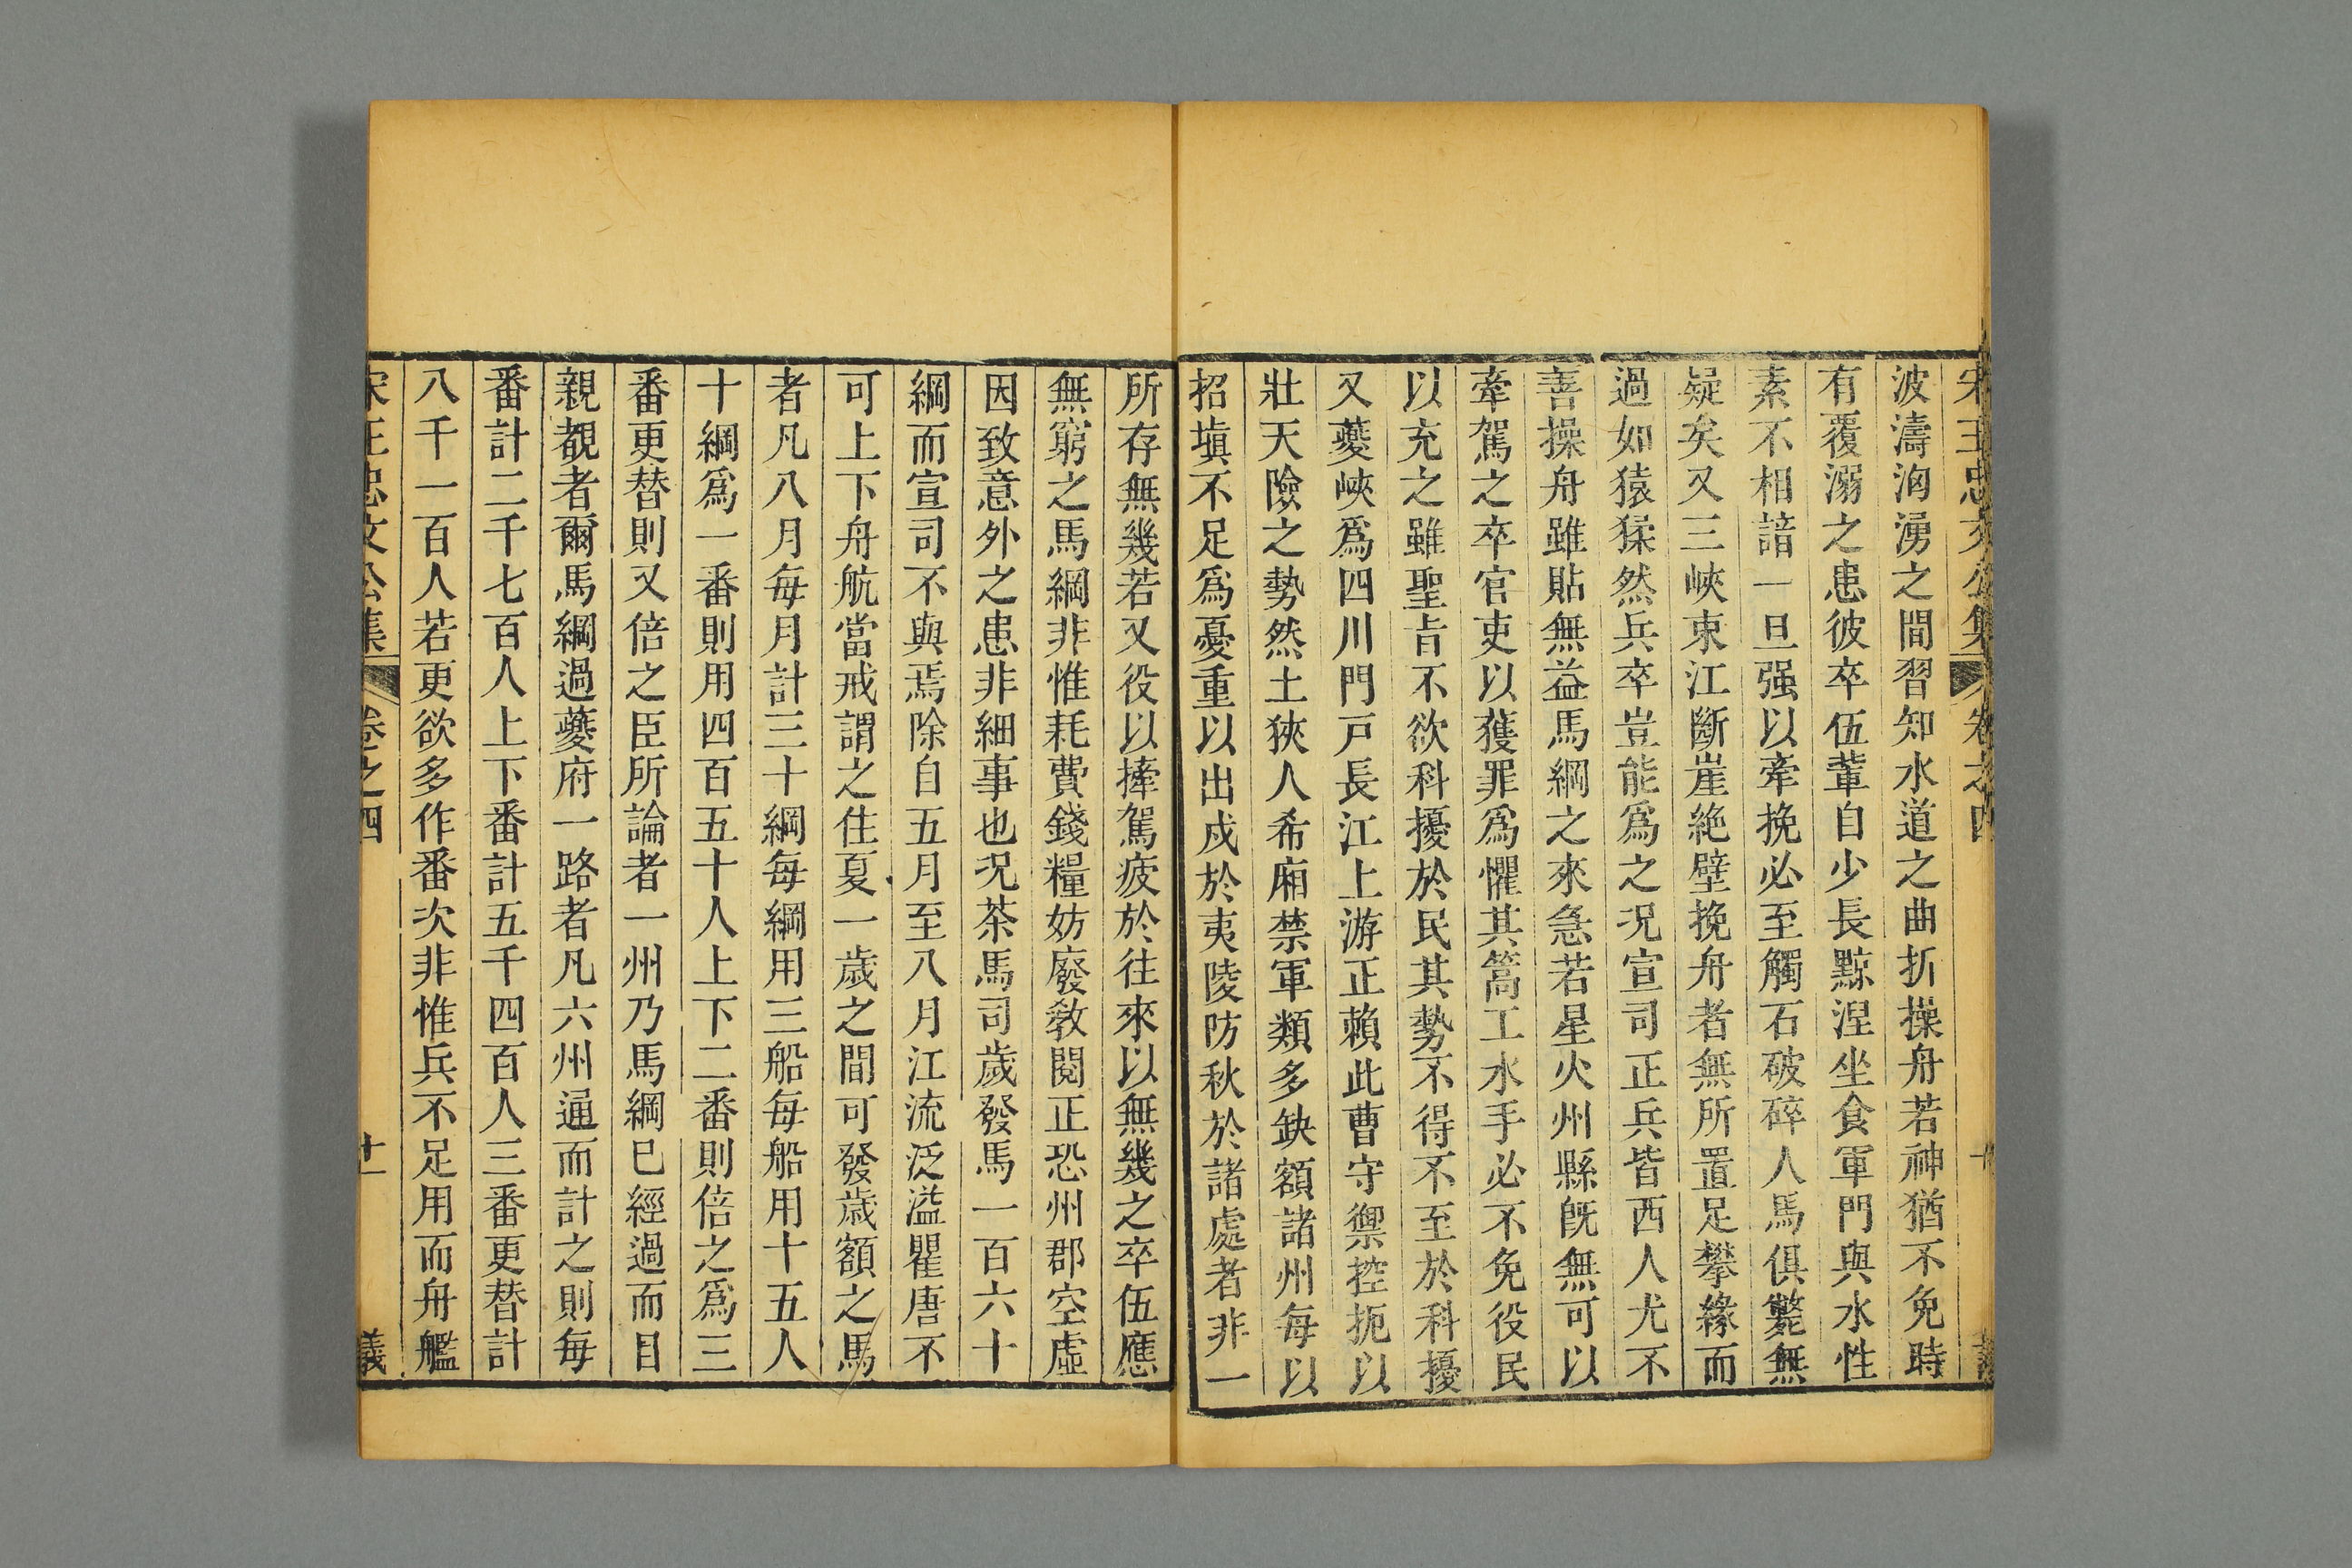 宋王忠文公集 卷之四 十
波濤洶湧之間習知水道之曲折操舟若神猶不免時
有覆溺之患彼卒伍輩自少長黥涅坐食軍門與水性
素不相諳一旦强以牽挽必至觸石破碎人馬俱斃無
疑矣又三峽束江斷崖絶壁挽舟者無所置足攀緣而
過如猿猱然兵卒豈能爲之况宣司正兵皆西人尤不
善操舟雖貼無益馬綱之來急若星火州縣旣無可以
牽駕之卒官吏以獲罪爲懼其篙工水手必不免役民
以充之雖聖旨不欲科擾於民其勢不得不至於科擾
又夔峽爲四川門戸長江上游正賴此曹守禦控扼以
壯天險之勢然土狹人希廂禁軍類多缺額諸州每以
招塡不足爲憂重以出戍於夷陵防秋於諸處者非一
所存無幾若又役以捧駕疲於往來以無幾之卒伍應
無窮之馬綱非惟耗費錢糧妨廢敎閱正恐州郡空虛
因致意外之患非細事也况茶馬司歲發馬一百六十
綱而宣司不與焉除自五月至八月江流泛溢瞿唐不
可上下舟航當戒謂之住夏一歲之間可發歲額之馬
者凡八月每月計三十綱每綱用三船每船用十五人
十綱爲一番則用四百五十人上下二番則倍之爲三
番更替則又倍之臣所論者一州乃馬綱巳經過而目
親覩者爾馬綱過夔府一路者凡六州通而計之則每
番計二千七百人上下番計五千四百人三番更替計
八千一百人若更欲多作番次非惟兵不足用而舟艦
宋王忠文公集 卷之四 十一 議